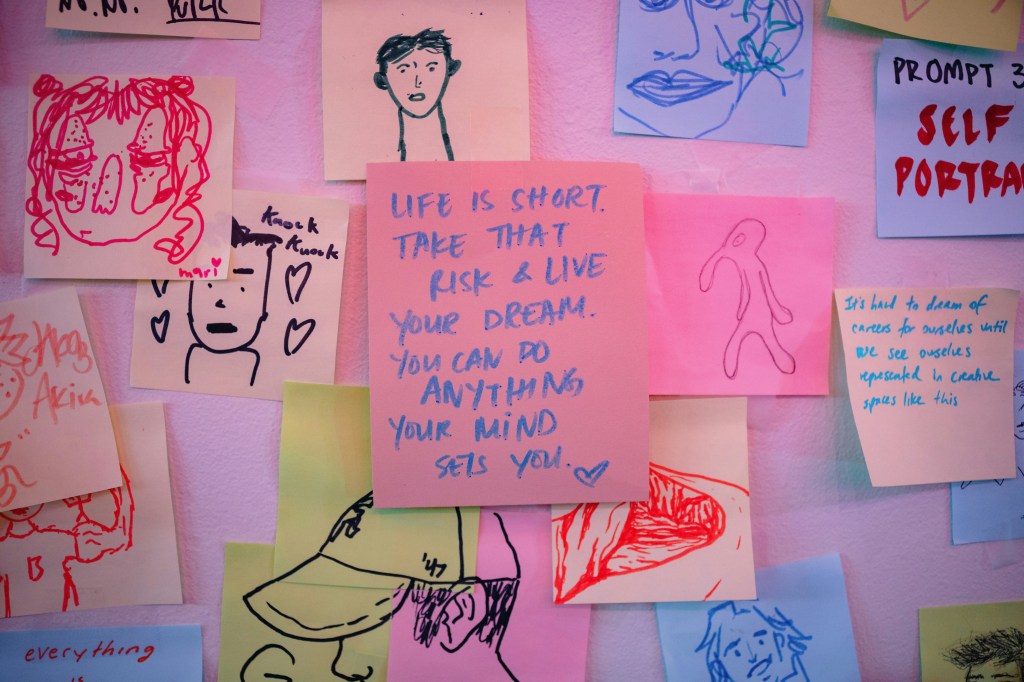 PROMPT 3
SELF
PORTRA
mari
Knock
Knock
LIFE IS SHORT.
TAKE THAT
RISK & LIVE
YOUR DREAM.
YOU CAN DO
ANYTHING
YOUR MIND
SETS YOU.
It's hard to dream of
careers for ourselves until
we see ourselves
represented in creative
spaces like this
Akira
'47
everything
is